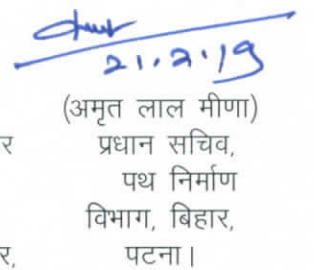 21.2.19
(अमृत लाल मीणा)
र प्रधान सचिव,
पथ निर्माण
विभाग, बिहार,
र, पटना।